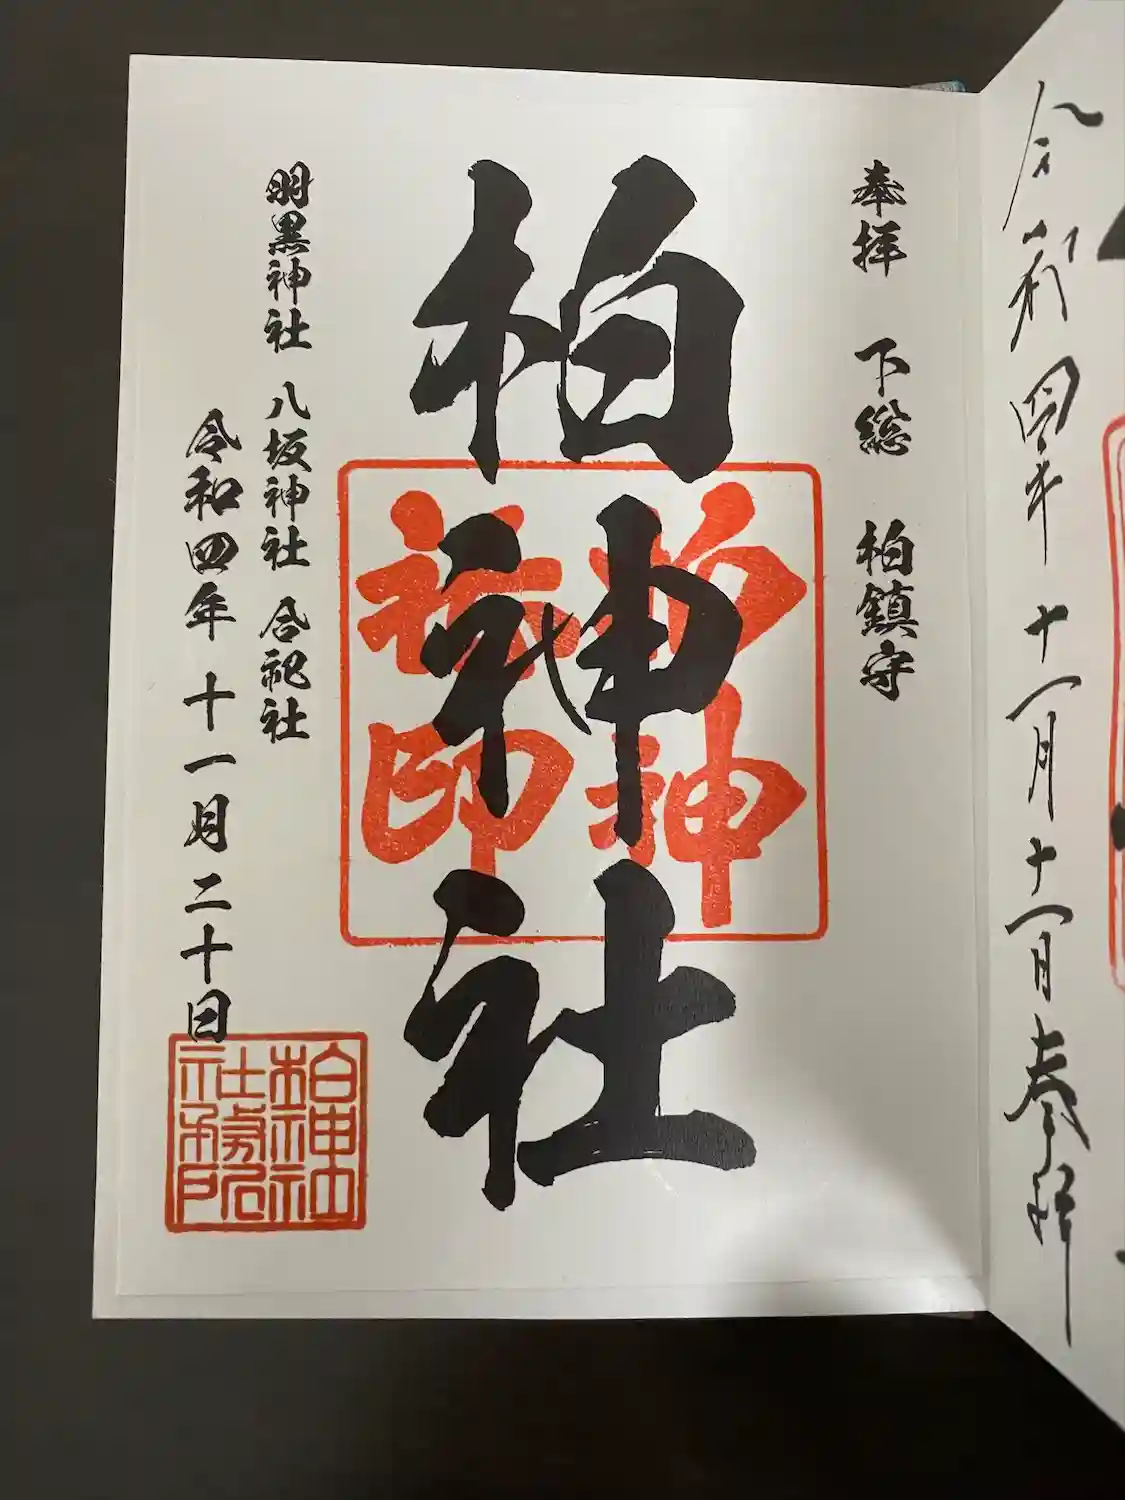 令和四年十一月十一日奉拝
奉拝 下総 柏鎮守
柏神社
柏神社印
羽黒神社 八坂神社 合祀社
令和四年 十一月 二十日
柏神社社務所